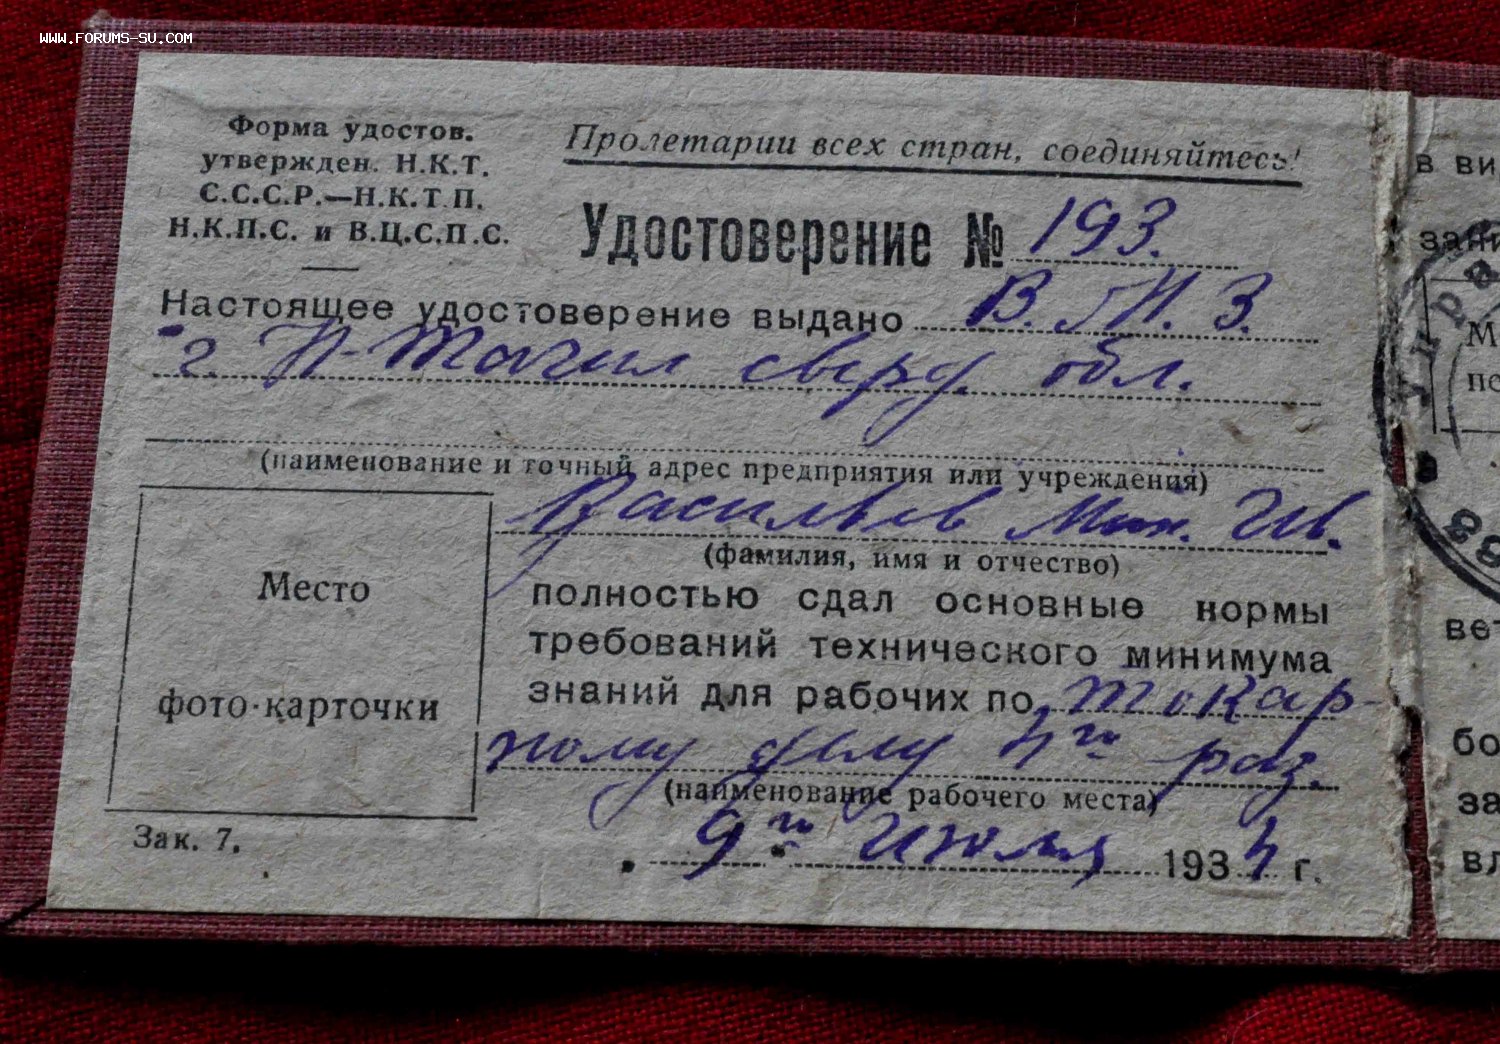 WWW.FORUMS-SU.COM
Форма удостов.
утвержден. Н.К.Т.
С.С.С.Р.—Н.К.Т.П.
Н.К.П.С. и В.Ц.С.П.С.
Пролетарии всех стран, соединяйтесь!
Удостоверение № 193.
Настоящее удостоверение выдано В. М. З.
г. Н-Тагил сверд. обл.
(наименование и точный адрес предприятия или учреждения)
Васильев Мих. Ив.
(фамилия, имя и отчество)
полностью сдал основные нормы
требований технического минимума
знаний для рабочих по токар-
ному делу 4го раз.
(наименование рабочего места)
9го Июля 1934 г.
Место
фото-карточки
Зак. 7.
в ви
зани
М
пе
вет
бо
за
вл